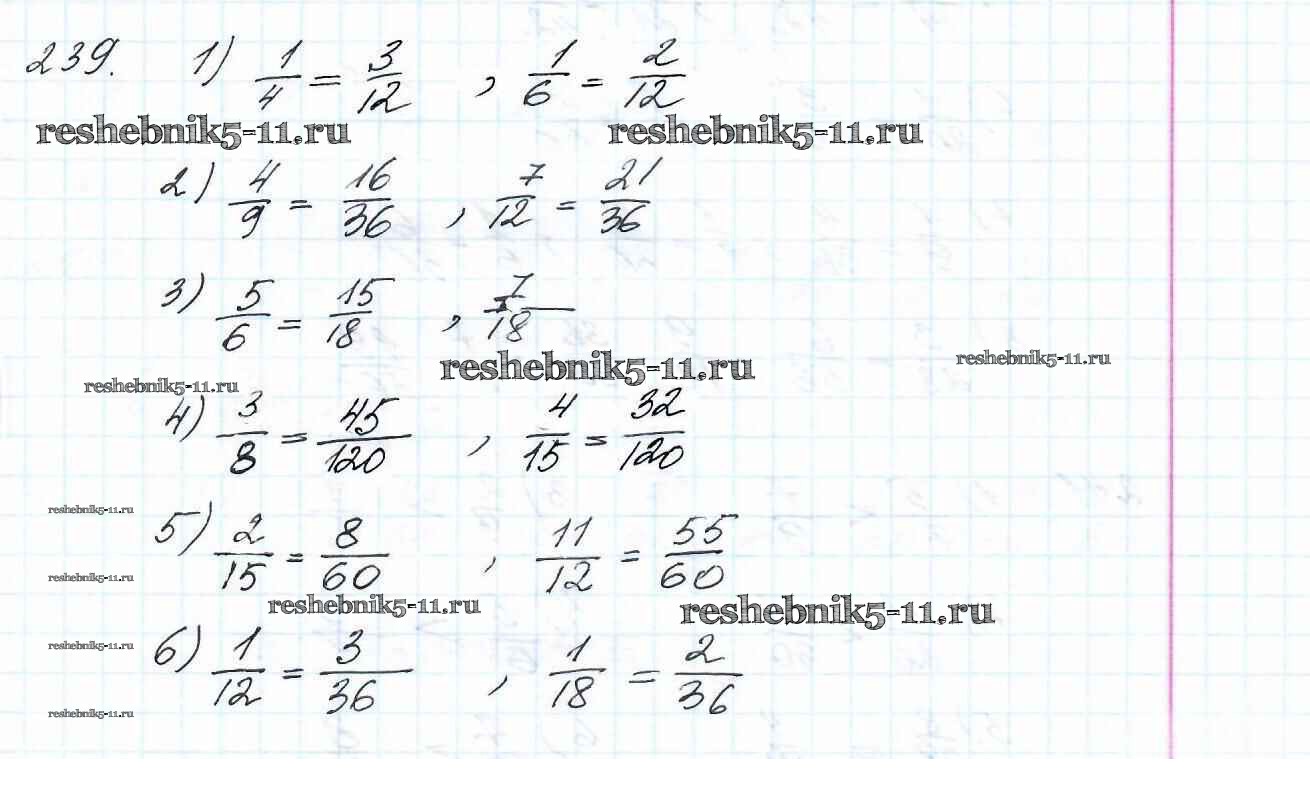 239. 1) 1/4 = 3/12 , 1/6 = 2/12
reshebnik5-11.ru reshebnik5-11.ru
2) 4/9 = 16/36 , 7/12 = 21/36
3) 5/6 = 15/18 , 7/18
reshebnik5-11.ru reshebnik5-11.ru
reshebnik5-11.ru
4) 3/8 = 45/120 , 4/15 = 32/120
reshebnik5-11.ru
5) 2/15 = 8/60 , 11/12 = 55/60
reshebnik5-11.ru
reshebnik5-11.ru reshebnik5-11.ru
6) 1/12 = 3/36 , 1/18 = 2/36
reshebnik5-11.ru
reshebnik5-11.ru